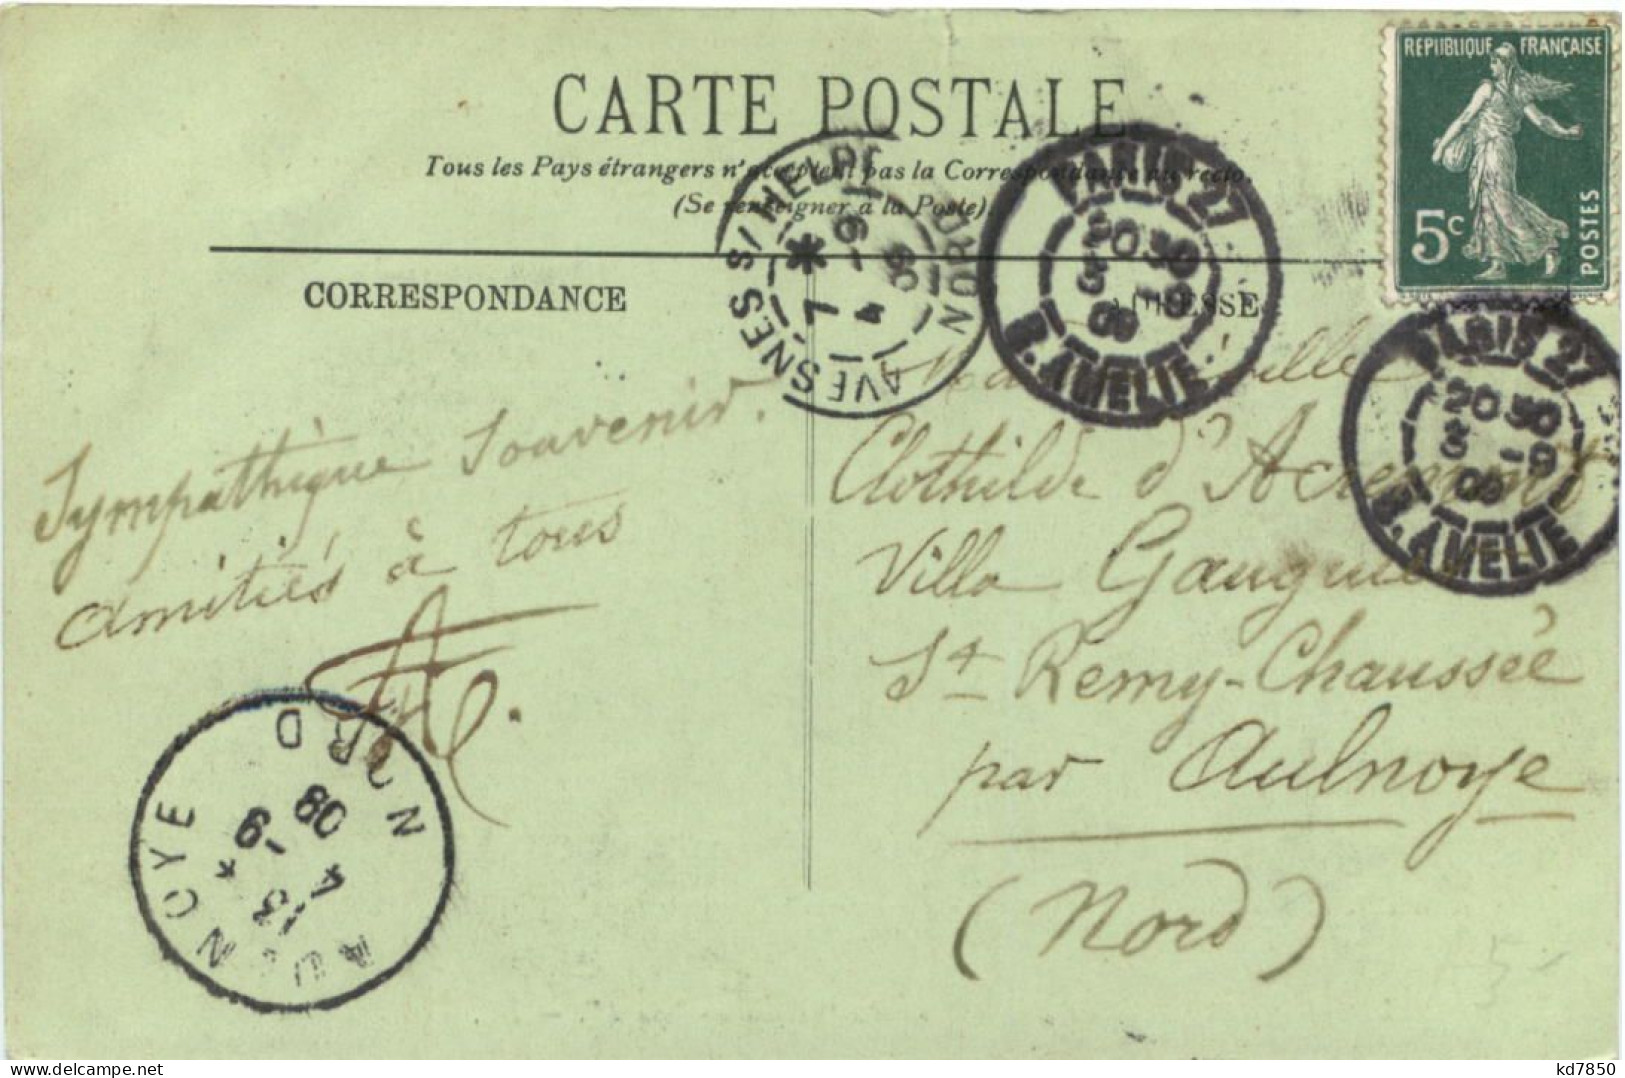 CARTE POSTALE
Tous les Pays étrangers n'acceptent pas la Correspondance au recto.
(Se renseigner à la Poste)
REPUBLIQUE FRANÇAISE
5c
POSTES
CORRESPONDANCE
ADRESSE
AVESNES S/ HELPE
NORD
7 * 4 -9 09
PARIS 27
20 30
3 -9
09
R. AMELIE
PARIS 27
20 30
3 -9
09
R. AMELIE
Sympathique Souvenir.
amitiés à tous
Clothilde d'
Villa
St Remy-Chaussée
par Aulnoye
(Nord)
AULNOYE
NORD
13 * 4 -9 09
kd7850